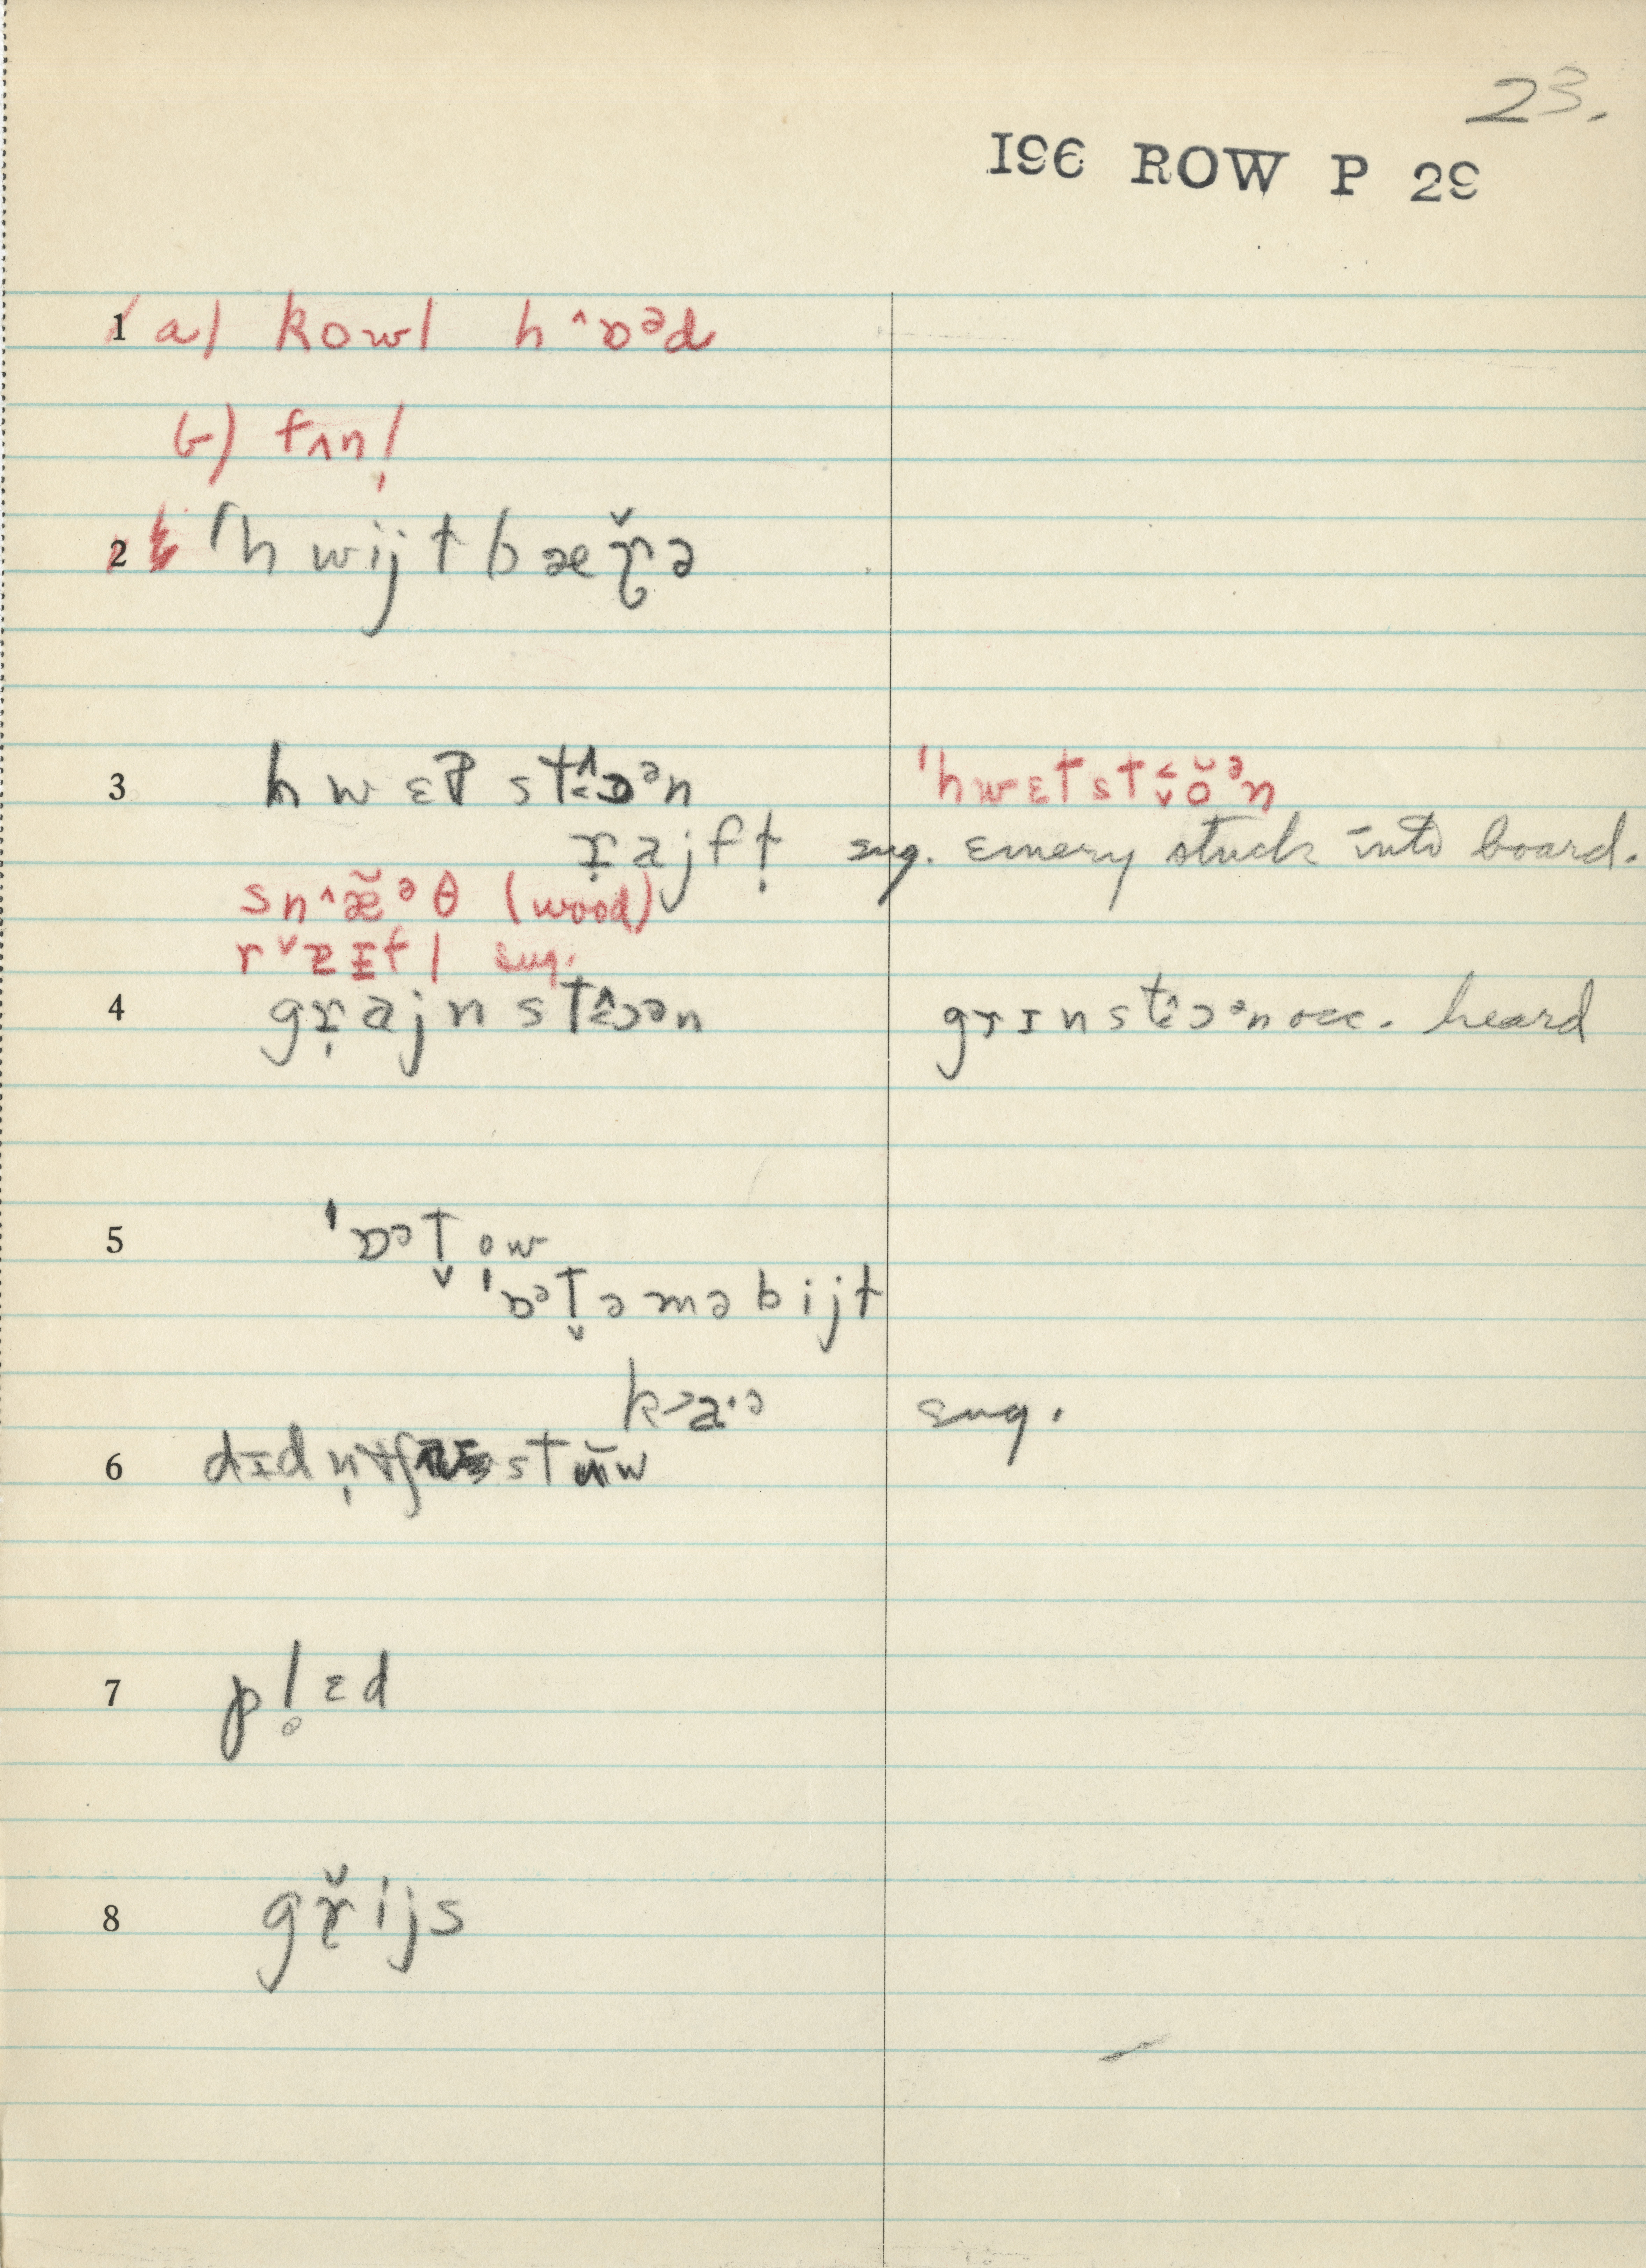 23.
196 ROW P 29
1 a) kowl hˆɒᵊd
b) tʌnl̩
2 ˈhwijtbæɽ̌ə
3 hwɛt stɔᵊn ˈhwɛtstɔᵊn
r̩ajft sug. emery stuck into board.
snˆæ̆ᵊθ (wood)
rˇzɪtl sug.
4 gr̩ajnstɔᵊn grɪnstɔᵊn occ. heard
5 ˈɒᵊt̬ow
ˈɒᵊt̬əməbijt
ka·ə sug.
6 dɪdn̩
7 pl̥ɛd
8 gř̨ijs